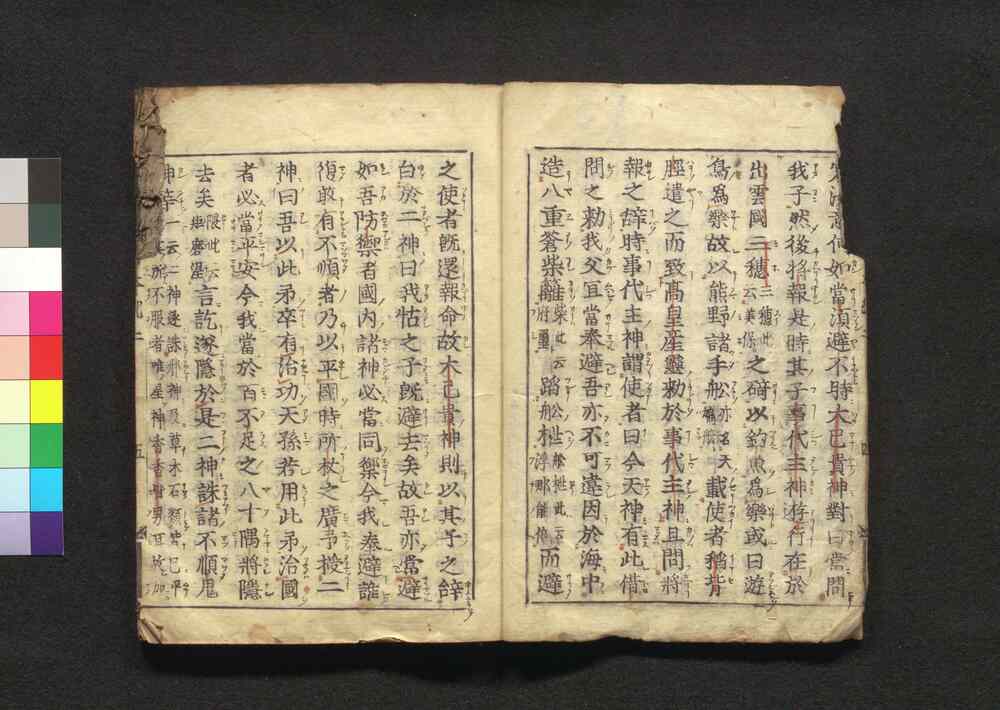 何如當須避不時大己貴神對曰當問
我子然後將報是時其子事代主神遊行在於
出雲國三穗三穗此云美保之碕以釣魚爲樂或曰遊
鳥爲樂故以熊野諸手船亦名天載使者稻背
脛遣之而致高皇産靈勅於事代主神且問將
報之辭時事代主神謂使者曰今天神有此借
問之勅我父宜當奉避吾亦不可違因於海中
造八重蒼柴籬柴此云府璽蹈船枻船枻此云浮那能倍而避
之使者既還報命故大己貴神則以其子之辭
白於二神曰我怙之子既避去矣故吾亦當避
如吾防禦者國内諸神必當同禦今我奉避誰
復敢有不順者乃以平國時所杖之廣矛授二
神曰吾以此矛卒有治功天孫若用此矛治國
者必當平安今我當於百不足之八十隅將隱
去矣隈此云矩磨泥言訖遂隱於是二神誅諸不順鬼
神等一云二神遂誅邪神及草木石類皆已平其所不服者唯星神香香背男耳故加